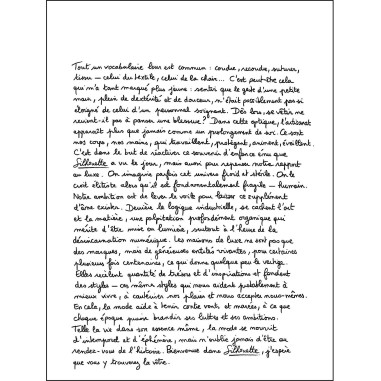 Tout un vocabulaire leur est commun : coudre, recoudre, suturer,
tisser – celui du textile, celui de la chair... C'est peut-être cela
qui m'a tant marqué plus jeune : sentir que le geste d'une petite
main, plein de dextérité et de douceur, n'était possiblement pas si
éloigné de celui d'un personnel soignant. Dès lors, se vêtir ne
revient-il pas à panser une blessure ? Dans cette optique, l'artisanat
apparaît plus que jamais comme un prolongement de soi. Ce sont
nos corps, nos mains, qui travaillent, protègent, animent, éveillent.
C'est dans le but de réactiver ce souvenir d'enfance ému que
Silhouette a vu le jour, mais aussi pour repenser notre rapport
au luxe. On imagine parfois cet univers froid et stérile. On le
croit élitiste alors qu'il est fondamentalement fragile – humain.
Notre ambition est de lever le voile pour laisser ce supplément
d'âme exister. Derrière la logique industrielle, se cachent l'art
et la matière, une palpitation profondément organique qui
mérite d'être mise en lumière, surtout à l'heure de la
désincarnation numérique. Les maisons de luxe ne sont pas que
des marques, mais de généreuses entités vivantes, pour certaines
plusieurs fois centenaires, ce qui donne quelque peu le vertige.
Elles recèlent quantité de trésors et d'inspirations et fondent
des styles – ces mêmes styles qui nous aident probablement à
mieux vivre, à cautériser nos plaies et nous accepter nous-mêmes.
En cela, la mode aide à tenir contre vents et marées, à ce que
chaque époque puisse brandir ses luttes et ses ambitions.
Telle la vie dans son essence même, la mode se nourrit
d'intemporel et d'éphémère, mais n'oublie jamais d'être au
rendez-vous de l'histoire. Bienvenue dans Silhouette, j'espère
que vous y trouverez la vôtre.